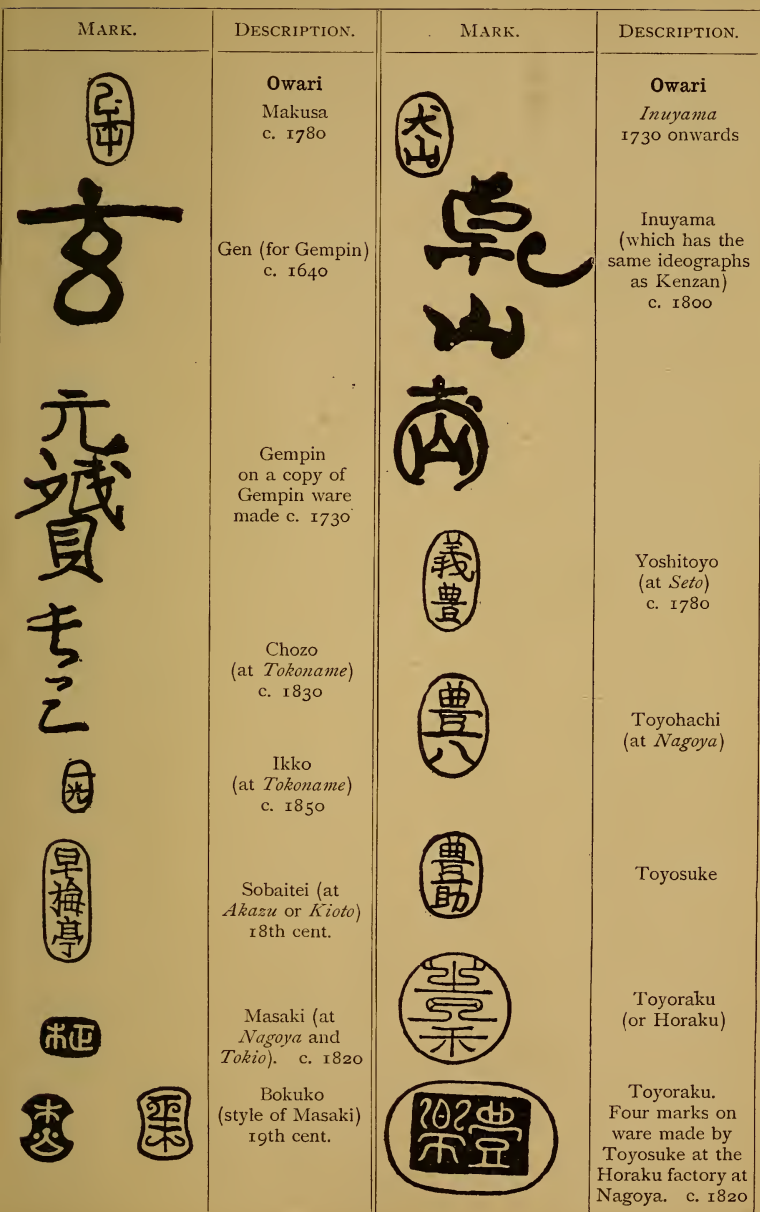 MARK.
DESCRIPTION.
MARK.
DESCRIPTION.
Owari
Makusa
c. 1780
玄
Gen (for Gempin)
c. 1640
元
贇
Gempin
on a copy of
Gempin ware
made c. 1730
Chozo
(at Tokoname)
c. 1830
一
光
Ikko
(at Tokoname)
c. 1850
早
梅
亭
Sobaitei (at
Akazu or Kioto)
18th cent.
正木
Masaki (at
Nagoya and
Tokio). c. 1820
Bokuko
(style of Masaki)
19th cent.
犬
山
Owari
Inuyama
1730 onwards
乾
山
Inuyama
(which has the
same ideographs
as Kenzan)
c. 1800
義
豊
Yoshitoyo
(at Seto)
c. 1780
豊
八
Toyohachi
(at Nagoya)
豊
助
Toyosuke
Toyoraku
(or Horaku)
豊樂
Toyoraku.
Four marks on
ware made by
Toyosuke at the
Horaku factory at
Nagoya. c. 1820